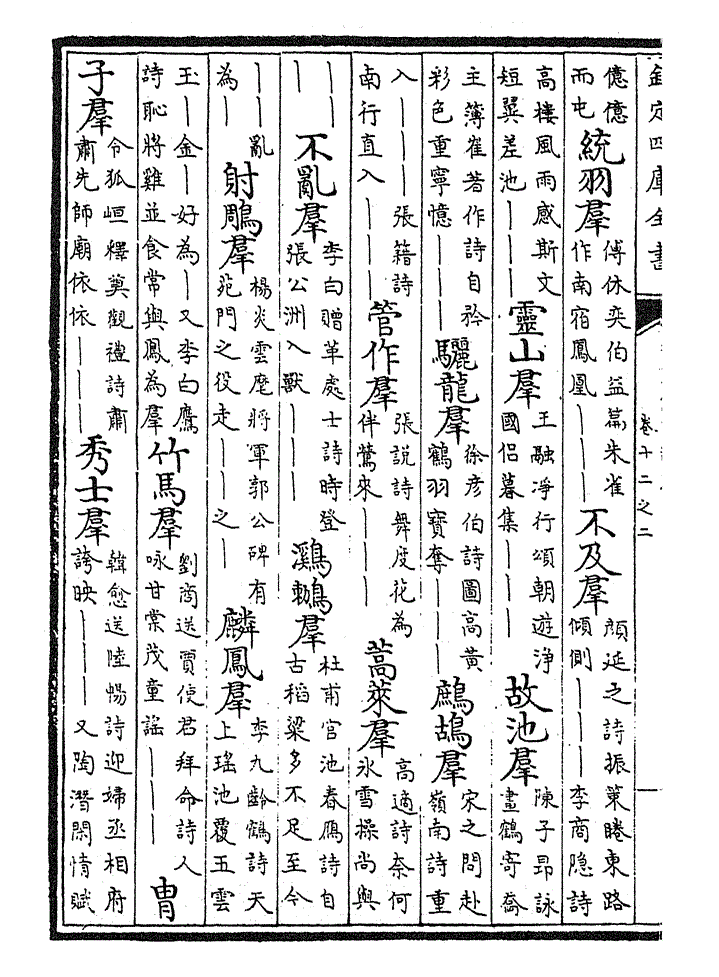 欽定四庫全書
卷十二之二
億億
而屯
統羽羣
傅休奕伯益篇朱雀
作南宿鳳凰｜｜｜
不及羣
顔延之詩振策睠東路
傾側｜｜｜李商隐詩
高樓風雨感斯文
短翼差池｜｜｜
靈山羣
王融淨行頌朝遊淨
國侣暮集｜｜｜
故池羣
陳子昂詠
畫鶴寄喬
主簿崔著作詩自矜
彩色重寧憶｜｜｜
驪龍羣
徐彦伯詩圖高黄
鶴羽寶奪｜｜｜
鷓鴣羣
宋之問赴
嶺南詩重
入｜｜｜張籍詩
南行直入｜｜｜
管作羣
張説詩舞度花為
伴鶯來｜｜｜
蒿萊羣
高適詩奈何
氷雪操尚與
｜｜
｜
不亂羣
李白贈革處士詩時登
張公洲入獸｜｜｜
鸂鶒羣
杜甫官池春鴈詩自
古稻粱多不足至今
｜｜亂
為｜
射鵰羣
楊炎雲麾將軍郭公碑有
苑門之役走｜｜之｜
麟鳳羣
李九齡鶴詩天
上瑶池覆五雲
玉｜金｜好為｜又李白鷹
詩恥將雞並食常與鳳為羣
竹馬羣
劉商送賈使君拜命詩人
咏甘棠茂童謡｜｜｜
胄
子羣
令狐峘釋奠觀禮詩肅
肅先師廟依依｜｜｜
秀士羣
韓愈送陸暢詩迎婦丞相府
誇映｜｜｜又陶潛閑情賦